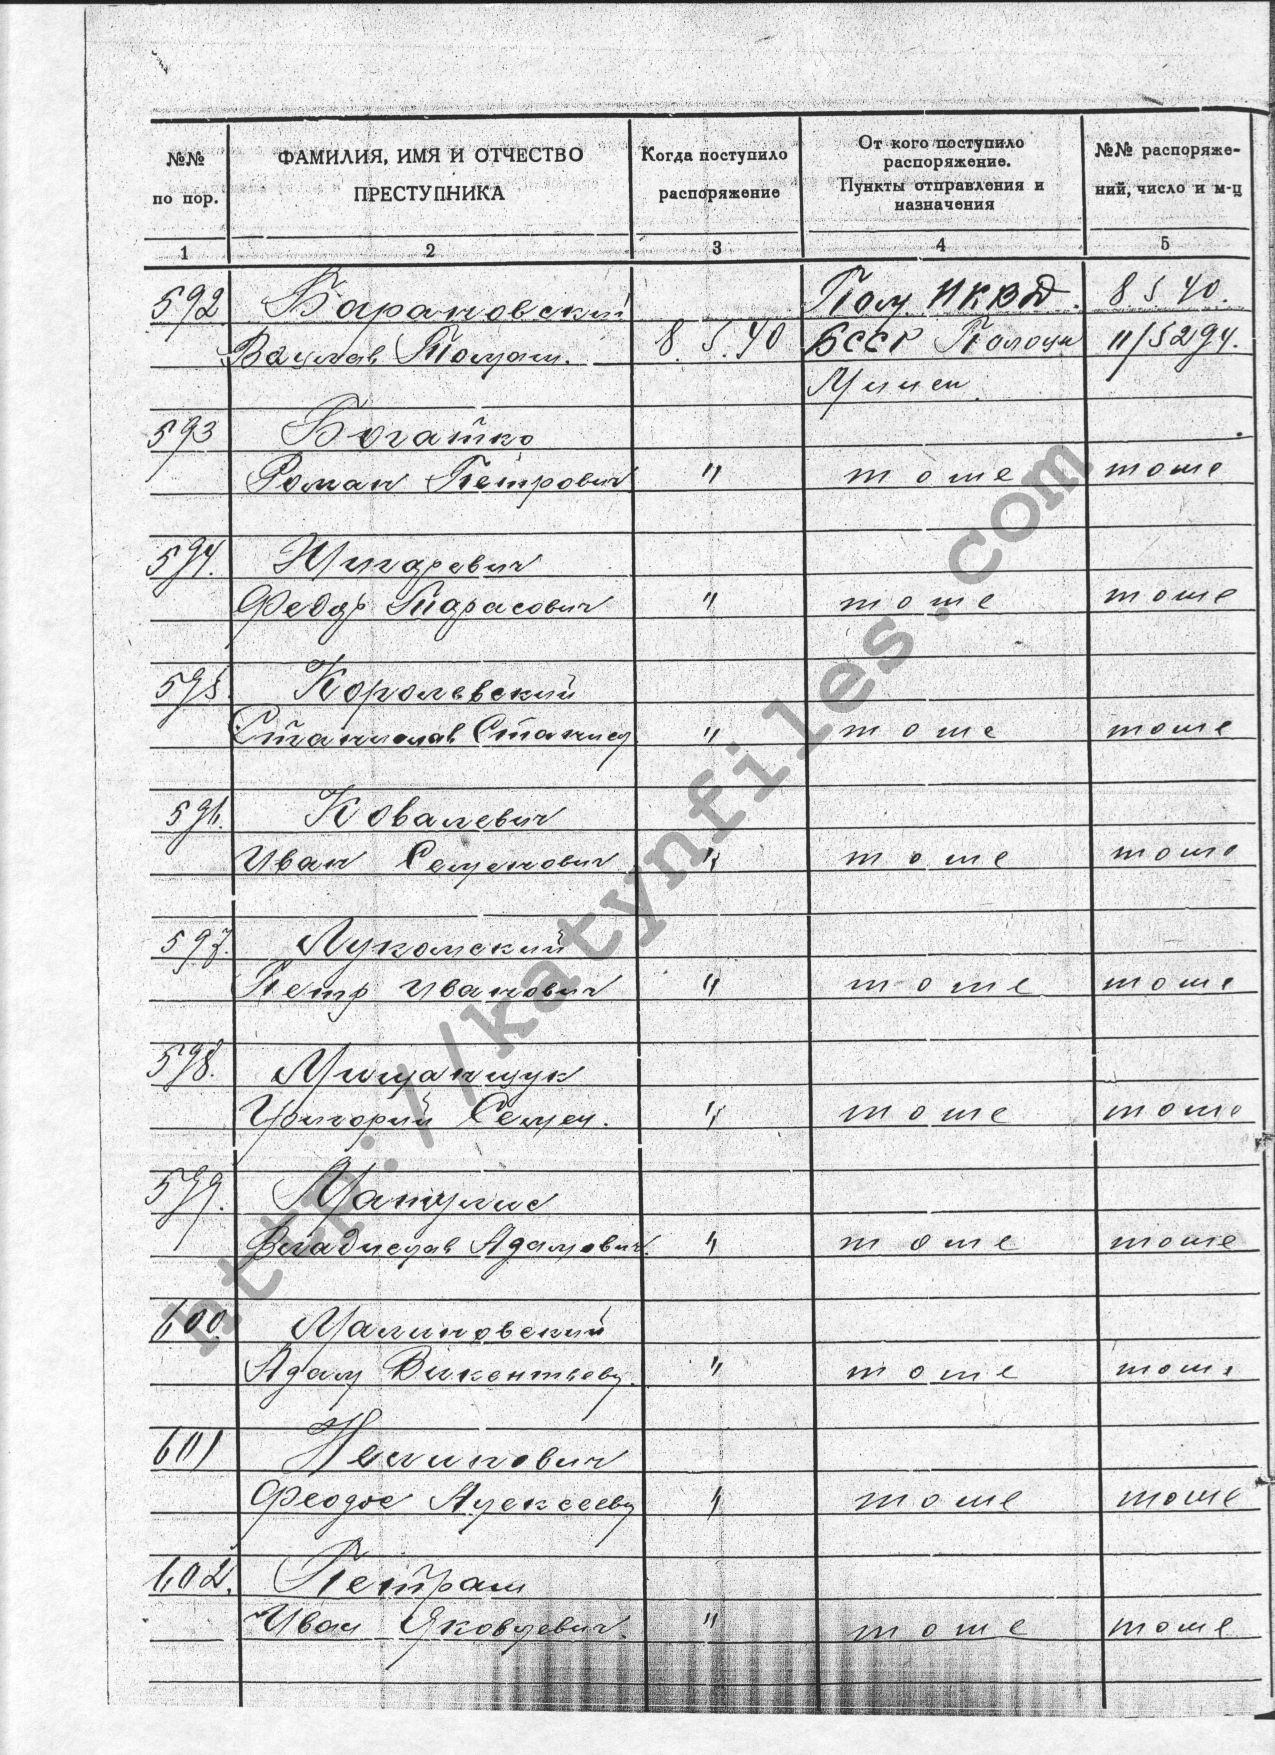 №№ по пор.
ФАМИЛИЯ, ИМЯ И ОТЧЕСТВО ПРЕСТУПНИКА
Когда поступило распоряжение
От кого поступило распоряжение. Пункты отправления и назначения
№№ распоряжений, число и м-ц
1 2 3 4 5
592 Барановский Пом. НКВД. 8 5 40.
Вацлав Томаш. 8. 5. 40 БССР Полоцк 11/5294.
Минск
593 Богатко
Роман Петрович " тоже тоже
594. Жигаревич
Федор Тарасович " тоже тоже
595. Королевский
Станислав Станисл " тоже тоже
596. Ковалевич
Иван Семенович " тоже тоже
597. Лукомский
Петр Иванович " тоже тоже
598. Мищанчук
Григорий Семен. " тоже тоже
599. Матулис
Владислав Адамович. " тоже тоже
600. Малиновский
Адам Викентьев. " тоже тоже
601 Неминович
Феодос Алексеев " тоже тоже
602. Петраш
Иван Яковлевич. " тоже тоже
http://katynfiles.com